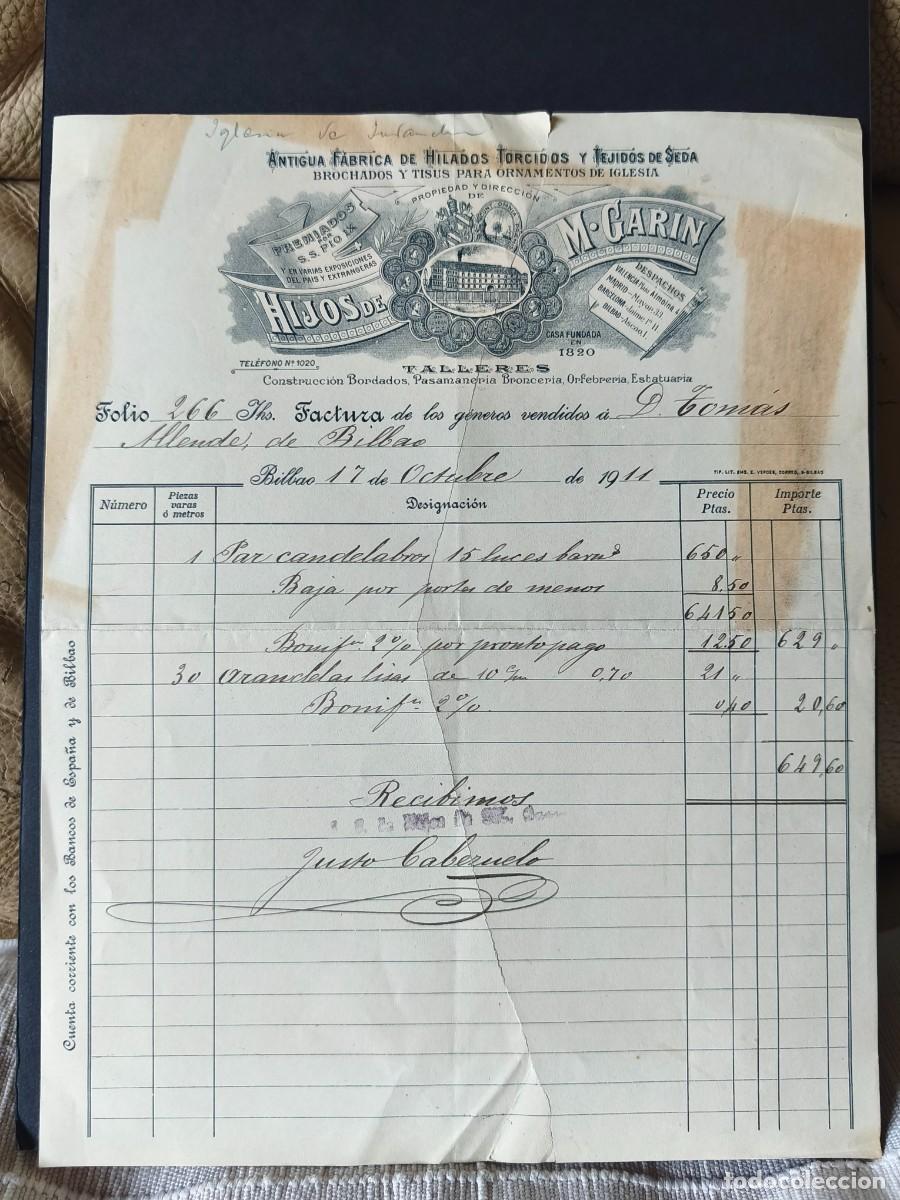 Iglesia de
ANTIGUA FÁBRICA DE HILADOS TORCIDOS Y TEJIDOS DE SEDA
BROCHADOS Y TISUS PARA ORNAMENTOS DE IGLESIA
PROPIEDAD Y DIRECCIÓN
DE
PREMIADOS
POR
S.S. PÍO IX
Y EN VARIAS EXPOSICIONES
DEL PAIS Y EXTRANGERAS
HIJOS DE
M. GARIN
DESPACHOS
VALENCIA Plaza Almoina, 4
MADRID - Mayor, 33
BARCELONA - Jaime 1º 11
BILBAO - Ascao, 1.
CASA FUNDADA
EN
1820
TELÉFONO Nº 1020
TALLERES
Construcción Bordados, Pasamanería Broncería, Orfebrería, Estatuaria
Folio 266 Ths. Factura de los géneros vendidos á D. Tomás
Allende, de Bilbao
Bilbao 17 de Octubre de 1911
TIP. LIT. EMS. E. VERDES, CORREO, 9-BILBAO
Número Piezas varas ó metros Designación Precio Ptas. Importe Ptas.
1 Par candelabros 15 luces barnd 650 "
Baja por portes de menos 8,50
641 50
Bonifon 2 % por pronto pago 12.50 629 "
30 Arandelas lisas de 10 c/m 0,70 21 "
Bonifon 2 % 0,40 20,60
649,60
Recibimos
Hijos de M. Garin
Justo Cabezuelo
Cuenta corriente con los Bancos de España y de Bilbao
todocoleccion